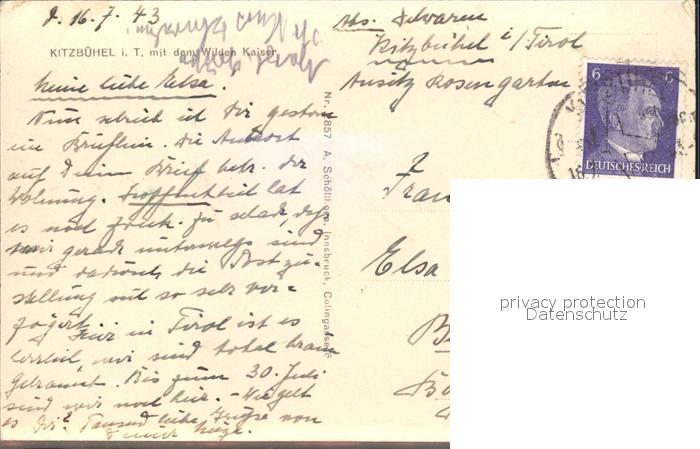 d. 16.7.43
Abs. Delvaren
Kitzbühel i/Tirol
Ansitz Rosengarten
KITZBÜHEL i. T. mit dem Wilden Kaiser
Meine liebe Elsa!
Nun schrieb ich Dir gestern
ein Brieflein. Die Antwort
auf Deinen Brief betr. der
Wohnung. Hoffentlich hat
es noch Zweck. Zu schade, dass
wir gerade unterwegs sind
und dadurch die Postzu-
stellung sich so sehr ver-
zögert. Hier in Tirol ist es
herrlich, wir sind total braun
gebrannt. Bis zum 30. Juli
sind wir noch hier. – Wie geht
es Dir? Tausend liebe Grüße von
Deiner
Nr. 1857 A. Schöllhorn, Innsbruck, Colingasse
6 6
DEUTSCHES REICH
Frau
Elsa
privacy protection
Datenschutz